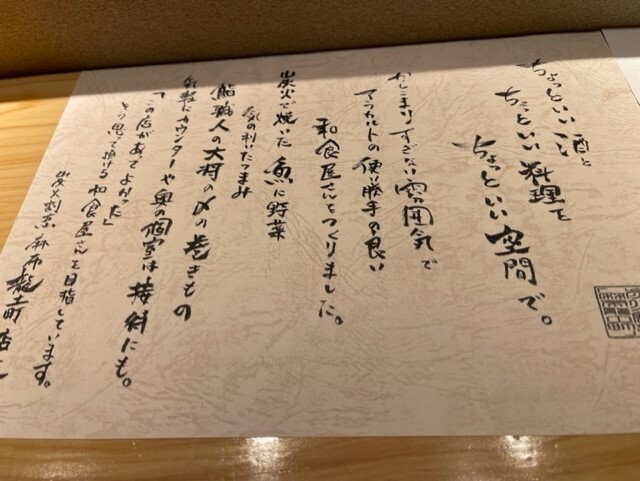 ちょっといい酒と
ちょっといい料理を
ちょっといい空間で。
かしこまりすぎない雰囲気で
アラカルトの使い勝手の良い
和食屋さんをつくりました。
炭火で焼いた魚に野菜
気の利いたつまみ
鮨職人の大将の〆の巻きもの
気軽にカウンターや奥の個室は接待にも。
「この店があってよかった」
そう思って頂ける和食屋さんを目指しています。
炭火割烹 麻布 龍土町 店